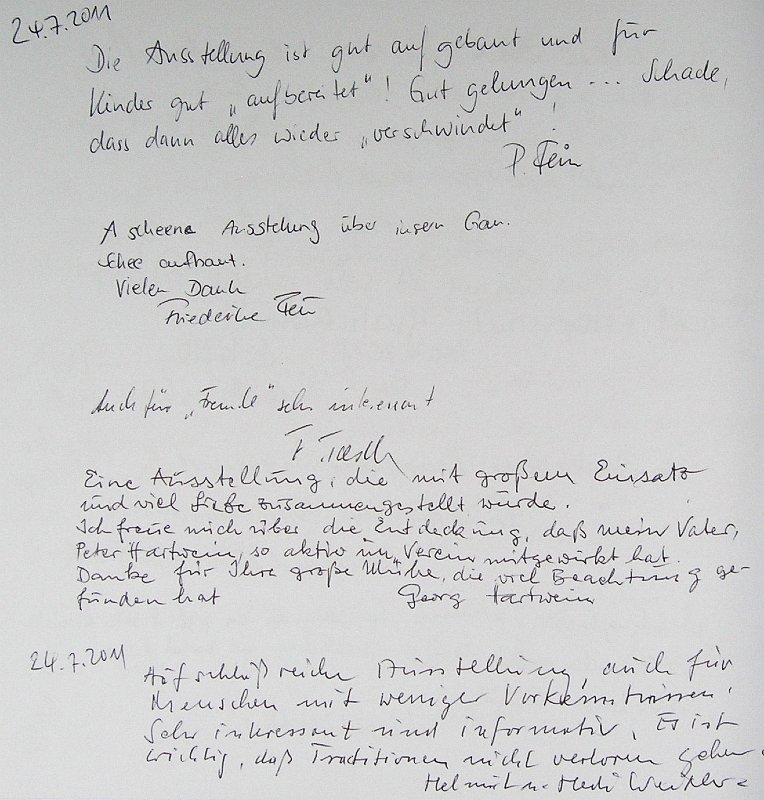 24.7.2011
Die Ausstellung ist gut aufgebaut und für
Kinder gut „aufbereitet"! Gut gelungen ... Schade,
dass dann alles wieder „verschwindet"!
P. Fein
A scheene Ausstellung über insern Gau.
Schee aufbaut.
Vielen Dank
Friederike Fein
Auch für „Fremde" sehr interessant
F.
Eine Ausstellung, die mit großem Einsatz
und viel Liebe zusammengestellt wurde.
Ich freue mich über die Entdeckung, daß mein Vater,
Peter Hartwein, so aktiv im Verein mitgewirkt hat.
Danke für Ihre große Mühe, die viel Beachtung ge-
funden hat Georg Hartwein
24.7.2011
Aufschlußreiche Ausstellung, auch für
Menschen mit weniger Vorkenntnissen!
Sehr interessant und informativ. Es ist
wichtig, daß Traditionen nicht verloren gehen.
Helmut u. Hedi